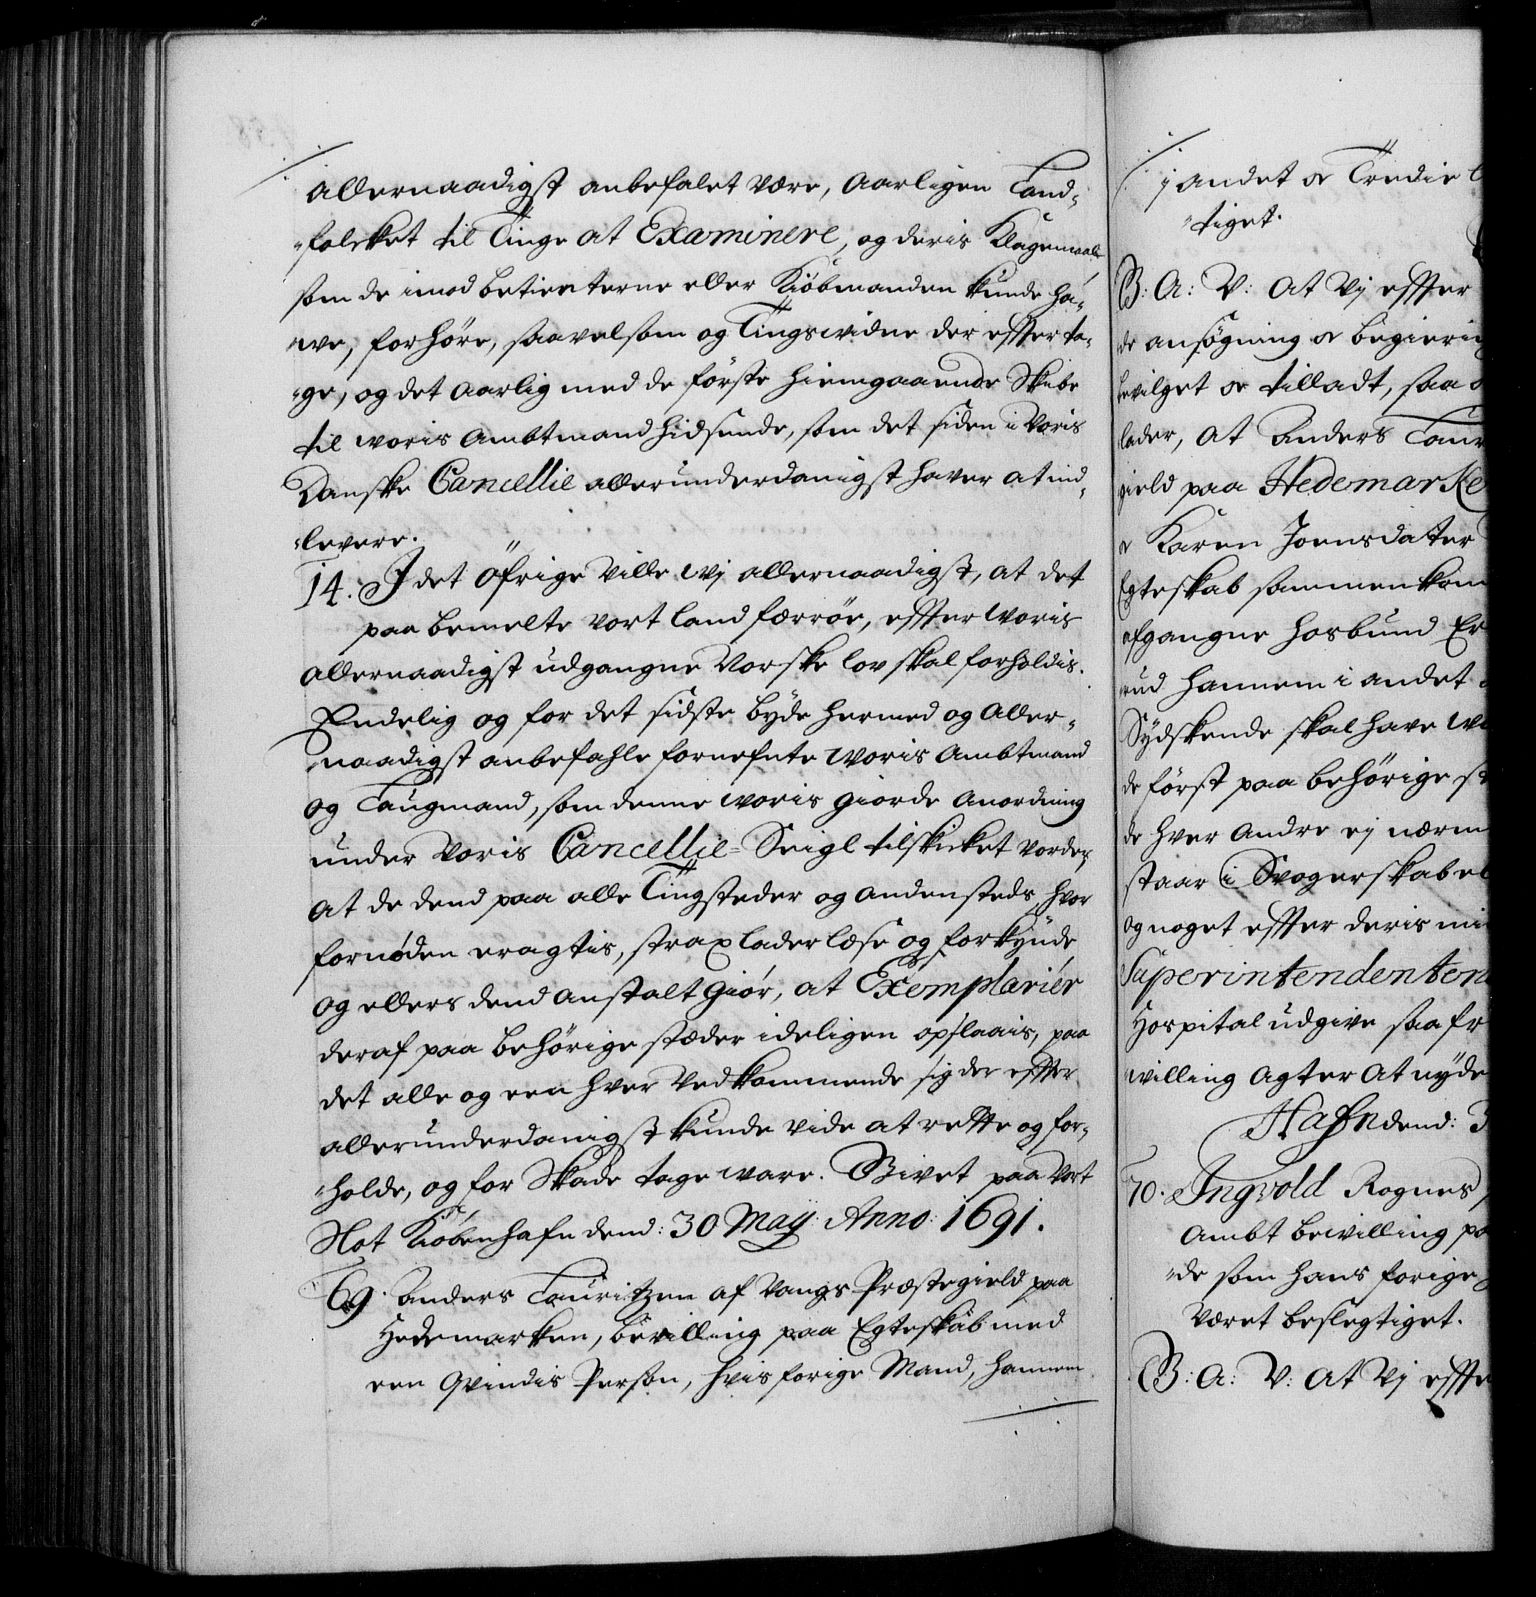 allernaadigst anbefalet være, aarligen Land-
-folcket til Tinge at Examinere, og deris Klagemaale
som de imod betienterne eller Kiöbmanden kunde ha-
-we, forhöre, saavelsom og Tingswidne der effter ta-
-ge, og det aarlig med de förste hiemgaaende Skibe
til woris Ambtmand hidsende, som det siden i Voris
Danske Cancellie allerunderdanigst haver at ind-
-levere.
14. I det Öfrige ville wj allernaadigst, at det
paa bemelte vort land færröe, effter woris
allernaadigst udgangne Norske lov skal forholdis.
Endelig og for det sidste byde hermed og Aller-
naadigst anbefahle fornefnte woris Ambtmand
og Laugmand, som denne woris giorde Anordning
under Voris Cancellie-Seigl tilskicket vorder,
at de dend paa alle Tingsteder og andensteds hvor
fornöden eragtis, strax lader læse og forkynde
og ellers dend anstalt giör, at Exemplariér
deraf paa behörige stæder ideligen opslaais, paa
det alle og een hver vedkommende sig der effter
allerunderdanigst kunde vide at rette og for-
-holde, og for Skade tage ware. Givet paa Vort
Slot Kiöbenhafn dend: 30 Maÿ Anno: 1691.
69. Anders Lauritzen af Vangs Præstegield paa
Hedemarken, bevilling paa Egteskab med
een Qvindis Person, hvis forige Mand, hannem
j andet og Tredie
-tiget.
B: A: V: at Vj effter
de ansögning og begiering
bevilget og tilladt, saa
lader, at Anders Laur
gield paa Hedemarke
Karen Joensdatter
Egteskab sammenkom
afgangne hosbund
hannem i andet
Sÿdskende skal have
de först paa behörige
de hver andre ej nærm
staar i Svogerskab el
og noget effter deris
Superintendenten
Hospital udgive saa fr
willing agter at nyde
Hafn dend: 3
70. Ingvold Rognes
Ambt bewilling pa
-de som hans forige
været beslegtiget.
B: A: V: at Vj effte